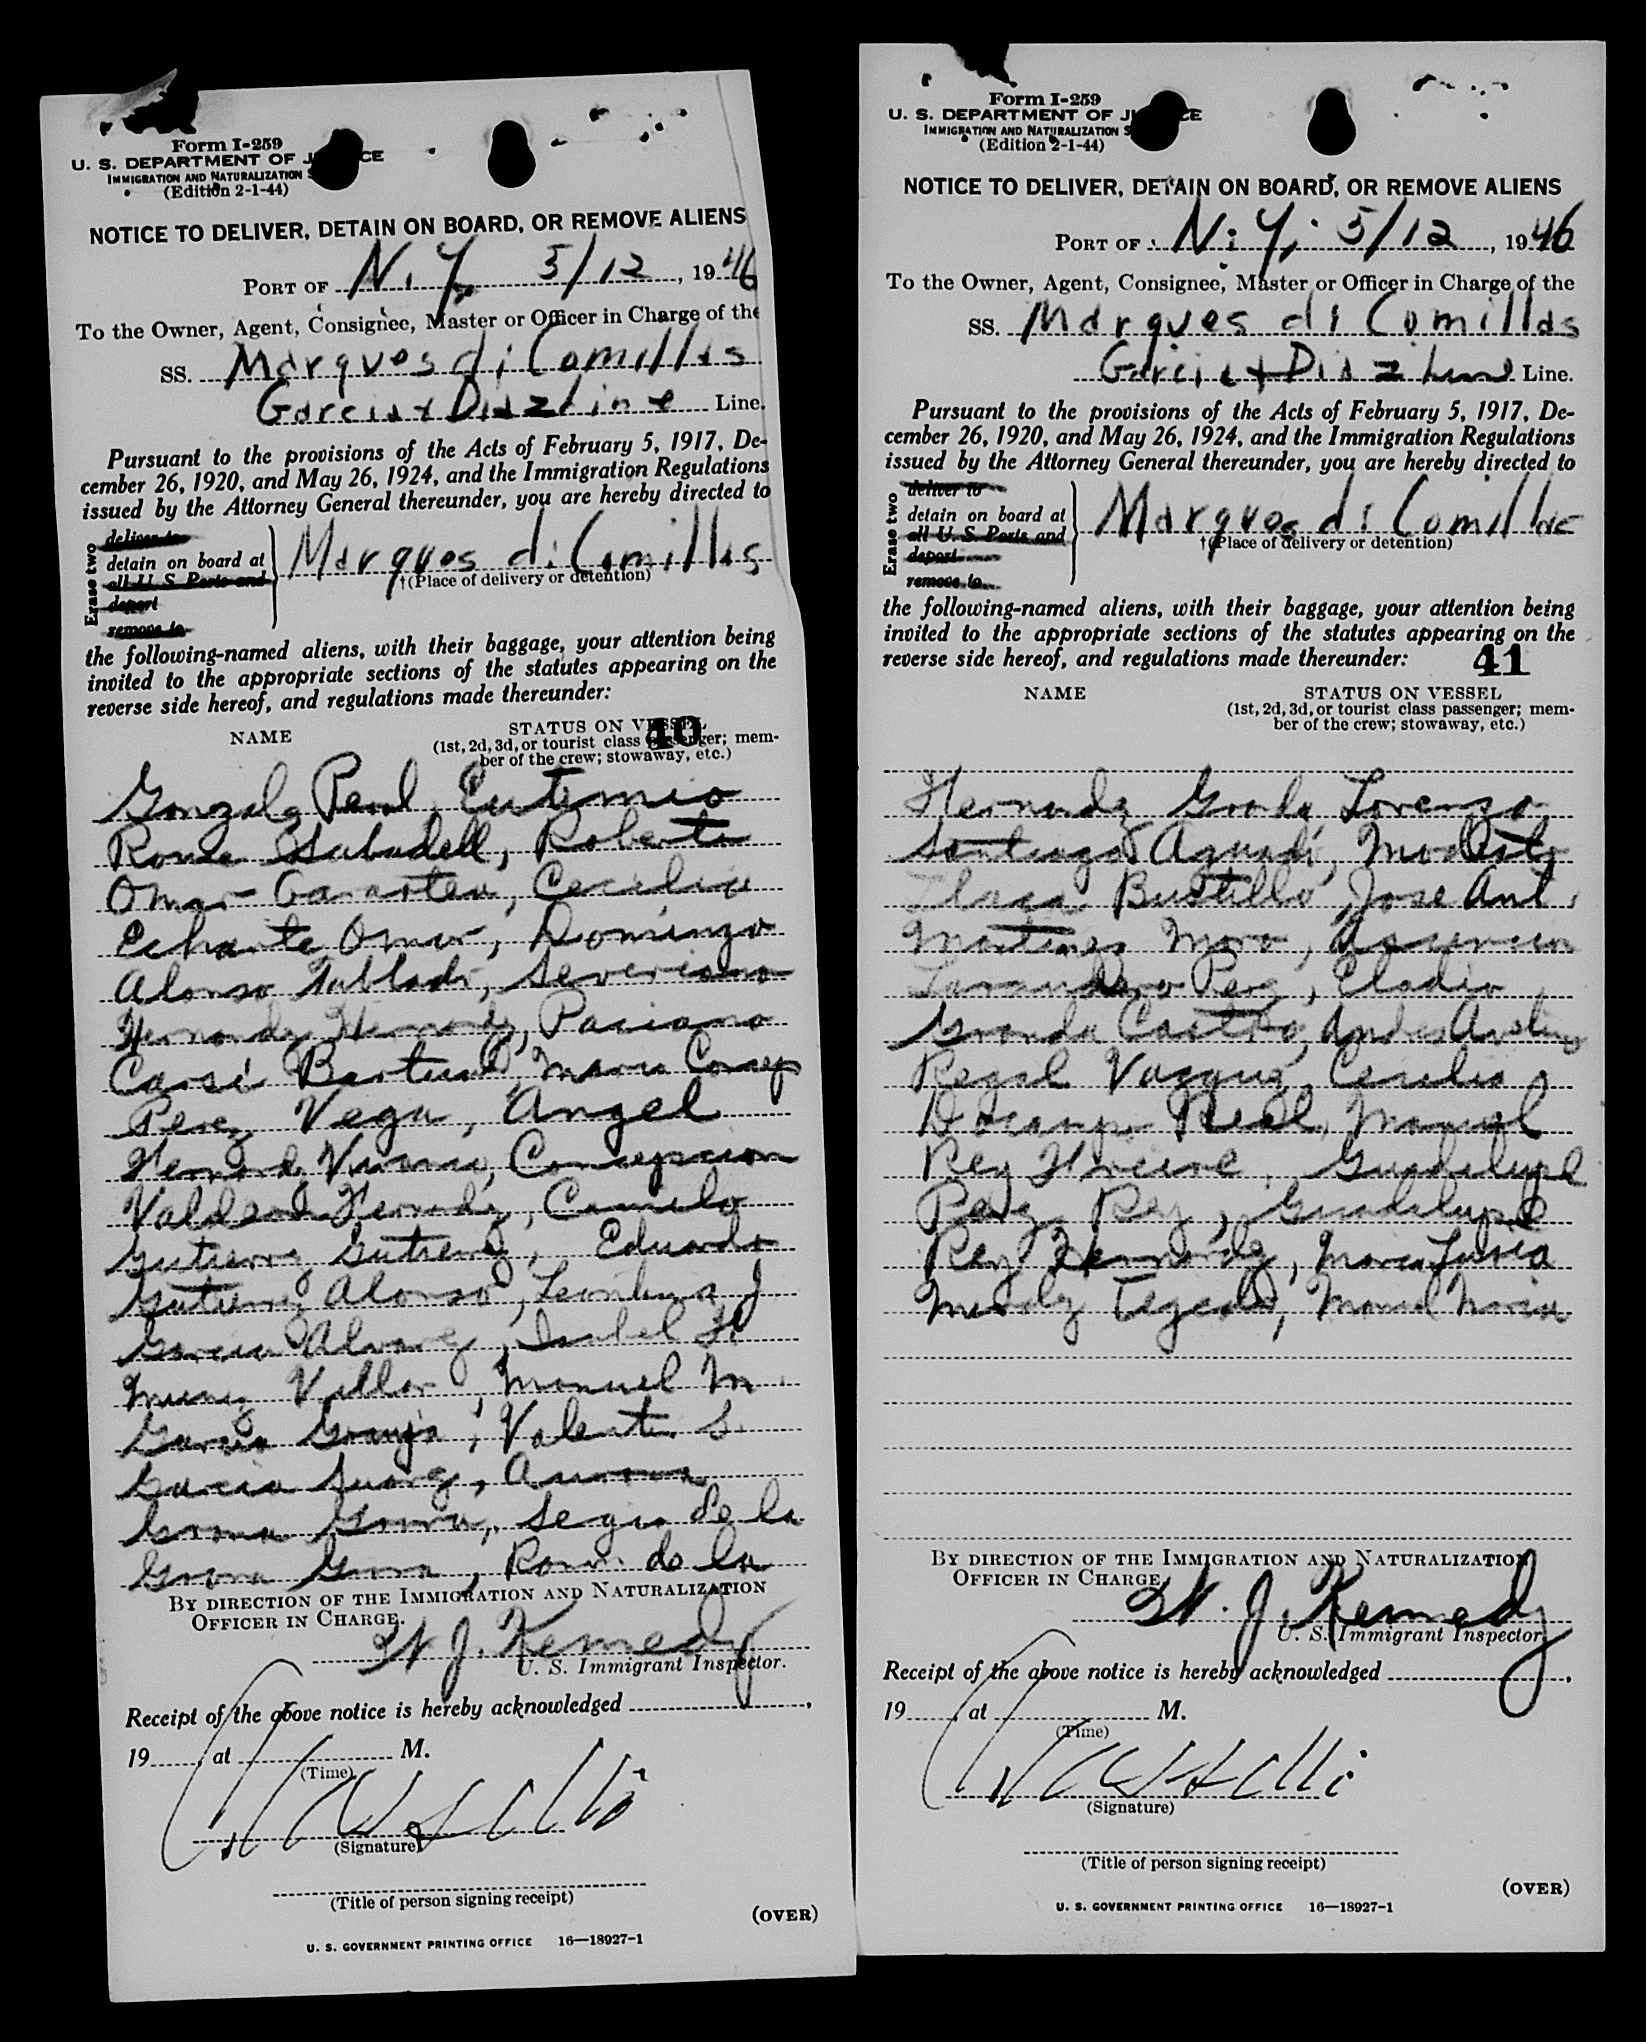 Form I-259
U. S. DEPARTMENT OF J CE
IMMIGRATION AND NATURALIZATION S
(Edition 2-1-44)
NOTICE TO DELIVER, DETAIN ON BOARD, OR REMOVE ALIENS
PORT OF N. Y. 5/12, 1946
To the Owner, Agent, Consignee, Master or Officer in Charge of the
SS. Marques di Comillas
Garcia + Diaz Line Line.
Pursuant to the provisions of the Acts of February 5, 1917, De-
cember 26, 1920, and May 26, 1924, and the Immigration Regulations
issued by the Attorney General thereunder, you are hereby directed to
Erase two
deliver to
detain on board at
all U. S. Ports and
deport
remove to
Marques di Comillas
†(Place of delivery or detention)
the following-named aliens, with their baggage, your attention being
invited to the appropriate sections of the statutes appearing on the
reverse side hereof, and regulations made thereunder:
40
NAME
STATUS ON VESSEL
(1st, 2d, 3d, or tourist class passenger; mem-
ber of the crew; stowaway, etc.)
Gonzalez Eutimio
Sabadell, Roberto
Omar Cecilia
Echarte Omar, Domingo
Alonso Tablado, Severiano
Hernandez Hernandez, Paciano
Maria Concep
Perez Vega, Angel
Concepcion
Valdes Camilo
Gutierrez Gutierrez, Eduardo
Gutierrez Alonso, J
Garcia Alvarez, Isabel H.
Muniz Villar, Manuel M.
Garcia Granja, Valentin S.
Garcia Suarez, Aurora
de la
de la
BY DIRECTION OF THE IMMIGRATION AND NATURALIZATION
OFFICER IN CHARGE.
W. J. Kennedy
U. S. Immigrant Inspector.
Receipt of the above notice is hereby acknowledged ,
19 , at M.
(Time)
(Signature)
(Title of person signing receipt)
(OVER)
U. S. GOVERNMENT PRINTING OFFICE 16—18927-1
Form I-259
U. S. DEPARTMENT OF J CE
IMMIGRATION AND NATURALIZATION S
(Edition 2-1-44)
NOTICE TO DELIVER, DETAIN ON BOARD, OR REMOVE ALIENS
PORT OF N. Y. 5/12, 1946
To the Owner, Agent, Consignee, Master or Officer in Charge of the
SS. Marques di Comillas
Garcia + Diaz Line Line.
Pursuant to the provisions of the Acts of February 5, 1917, De-
cember 26, 1920, and May 26, 1924, and the Immigration Regulations
issued by the Attorney General thereunder, you are hereby directed to
Erase two
deliver to
detain on board at
all U. S. Ports and
deport
remove to
Marques di Comillas
†(Place of delivery or detention)
the following-named aliens, with their baggage, your attention being
invited to the appropriate sections of the statutes appearing on the
reverse side hereof, and regulations made thereunder:
41
NAME
STATUS ON VESSEL
(1st, 2d, 3d, or tourist class passenger; mem-
ber of the crew; stowaway, etc.)
Hernandez Lorenzo
Santiago Modesto
Bustillo, Jose Ant.
Martinez Mora, Asuncion
Perez, Eladio
Granda Castro, Andres Avelino
Regal Vazquez, Cecilia
Docampo Manuel
Rey Guadalupe
Perez Rey, Guadalupe
Rey Hernandez, Maria Luisa
Mendez Manuel Maria
BY DIRECTION OF THE IMMIGRATION AND NATURALIZATION
OFFICER IN CHARGE.
W. J. Kennedy
U. S. Immigrant Inspector.
Receipt of the above notice is hereby acknowledged ,
19 , at M.
(Time)
(Signature)
(Title of person signing receipt)
(OVER)
U. S. GOVERNMENT PRINTING OFFICE 16—18927-1